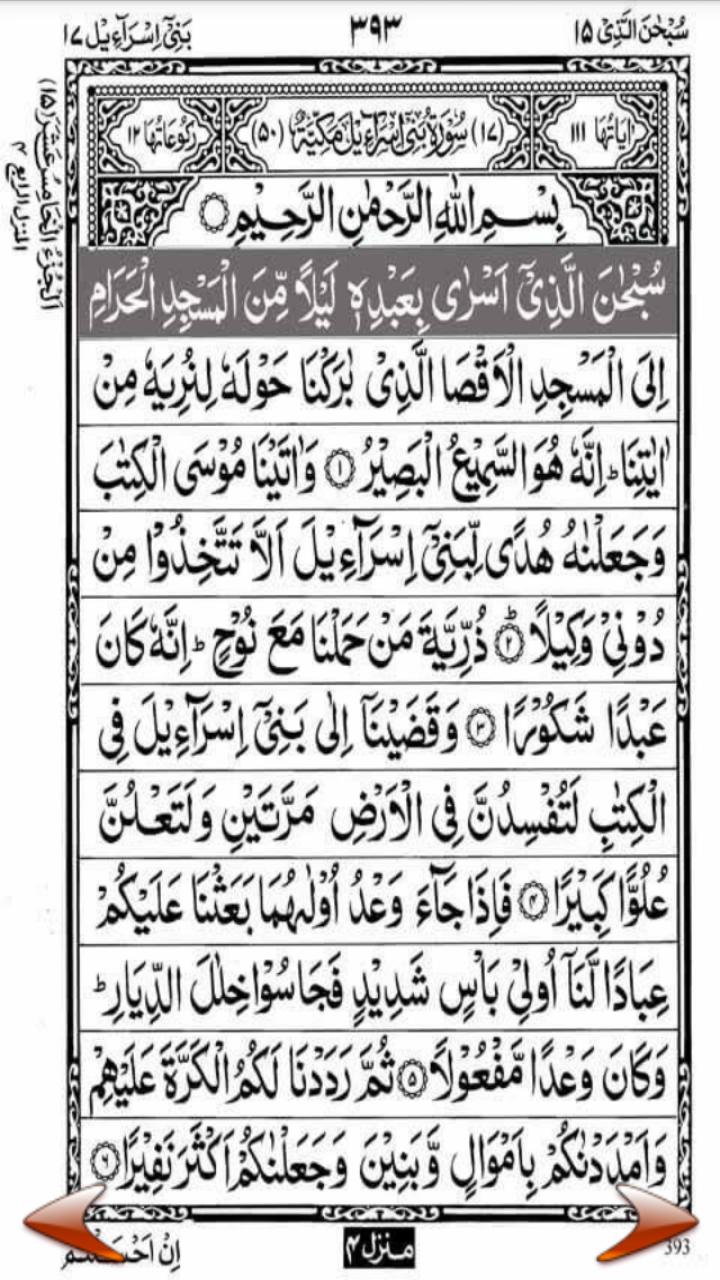 سُبْحٰنَ الَّذِیْ ۱۵
۳۹۳
بَنِیْۤ اِسْرَآءِیْل ۱۷
اٰیَاتُهَا ۱۱۱
(۱۷) سُوْرَةُ بَنِیْۤ اِسْرَآءِیْلَ مَكِّیَّةٌ (۵۰)
رُكُوْعَاتُهَا ۱۲
اَلْجُزْءُ الْخَامِسُ عَشَرَ (۱۵)
المنزل الرابع ۴
بِسْمِ اللّٰهِ الرَّحْمٰنِ الرَّحِیْمِ
سُبْحٰنَ الَّذِیْۤ اَسْرٰی بِعَبْدِهٖ لَیْلًا مِّنَ الْمَسْجِدِ الْحَرَامِ
اِلَی الْمَسْجِدِ الْاَقْصَا الَّذِیْ بٰرَكْنَا حَوْلَهٗ لِنُرِیَهٗ مِنْ
اٰیٰتِنَا ؕ اِنَّهٗ هُوَ السَّمِیْعُ الْبَصِیْرُ ۱ وَاٰتَیْنَا مُوْسَی الْكِتٰبَ
وَجَعَلْنٰهُ هُدًی لِّبَنِیْۤ اِسْرَآءِیْلَ اَلَّا تَتَّخِذُوْا مِنْ
دُوْنِیْ وَكِیْلًا ؕ ۲ ذُرِّیَّةَ مَنْ حَمَلْنَا مَعَ نُوْحٍ ؕ اِنَّهٗ كَانَ
عَبْدًا شَكُوْرًا ۳ وَقَضَیْنَاۤ اِلٰی بَنِیْۤ اِسْرَآءِیْلَ فِی
الْكِتٰبِ لَتُفْسِدُنَّ فِی الْاَرْضِ مَرَّتَیْنِ وَلَتَعْلُنَّ
عُلُوًّا كَبِیْرًا ۴ فَاِذَا جَآءَ وَعْدُ اُوْلٰىهُمَا بَعَثْنَا عَلَیْكُمْ
عِبَادًا لَّنَاۤ اُولِیْ بَاْسٍ شَدِیْدٍ فَجَاسُوْا خِلٰلَ الدِّیَارِ ؕ
وَكَانَ وَعْدًا مَّفْعُوْلًا ۵ ثُمَّ رَدَدْنَا لَكُمُ الْكَرَّةَ عَلَیْهِمْ
وَاَمْدَدْنٰكُمْ بِاَمْوَالٍ وَّبَنِیْنَ وَجَعَلْنٰكُمْ اَكْثَرَ نَفِیْرًا ۶
393
منزل ۴
اِنْ